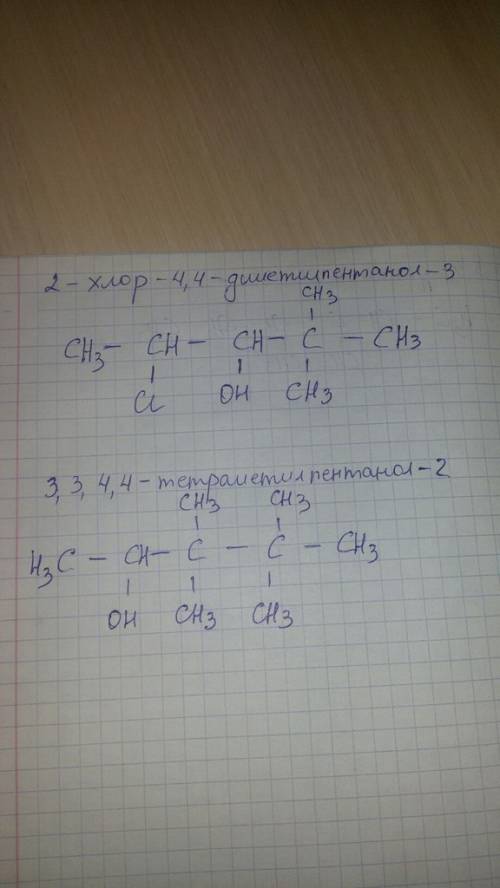 2-хлор-4,4-диметилпентанол-3
CH3
CH3- CH - CH- C - CH3
Cl OH CH3
3, 3, 4, 4-тетраметилпентанол-2
CH3 CH3
H3C - CH- C - C - CH3
OH CH3 CH3